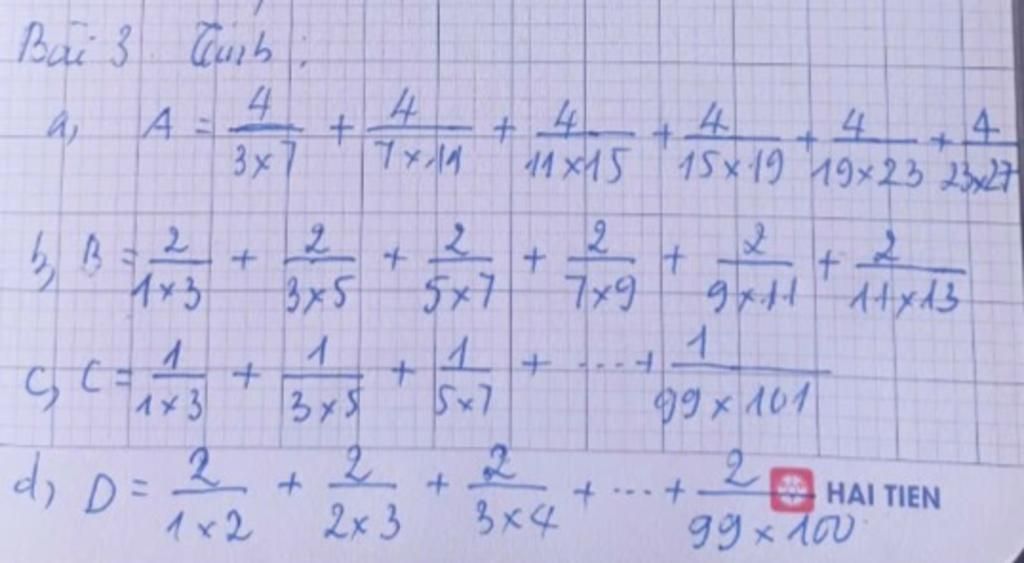 Bài 3 Tính :
a, A = 4/(3×7) + 4/(7×11) + 4/(11×15) + 4/(15×19) + 4/(19×23) + 4/(23×27)
b, B = 2/(1×3) + 2/(3×5) + 2/(5×7) + 2/(7×9) + 2/(9×11) + 2/(11×13)
c, C = 1/(1×3) + 1/(3×5) + 1/(5×7) + ... + 1/(99×101)
d, D = 2/(1×2) + 2/(2×3) + 2/(3×4) + ... + 2/(99×100)
HAI TIEN